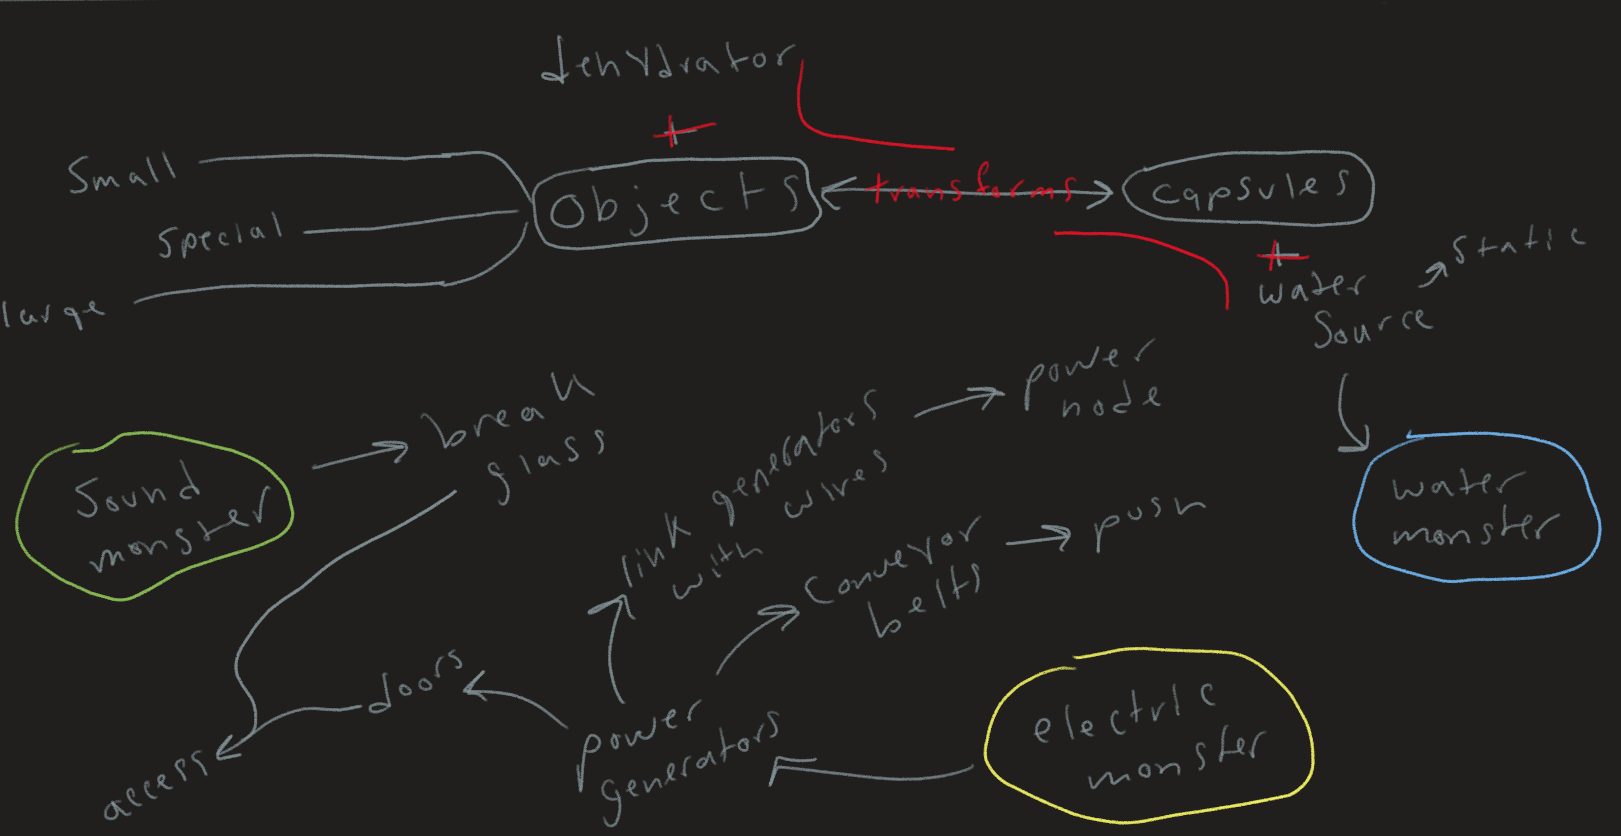 dehydrator
+
small
special
large
objects
transforms
capsules
+
water
source
static
water
monster
sound
monster
break
glass
link generators
with wires
power
node
conveyor
belts
push
doors
access
power
generators
electric
monster